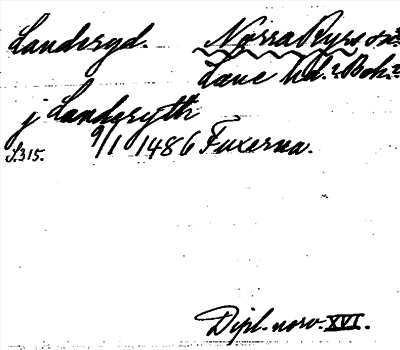 Landsryd. Norra Ryrs sn
Lane Hd. Boh.
j Landzryth
9/1 1486 Fuxerna.
S.315.
Dipl. norv. XVI.